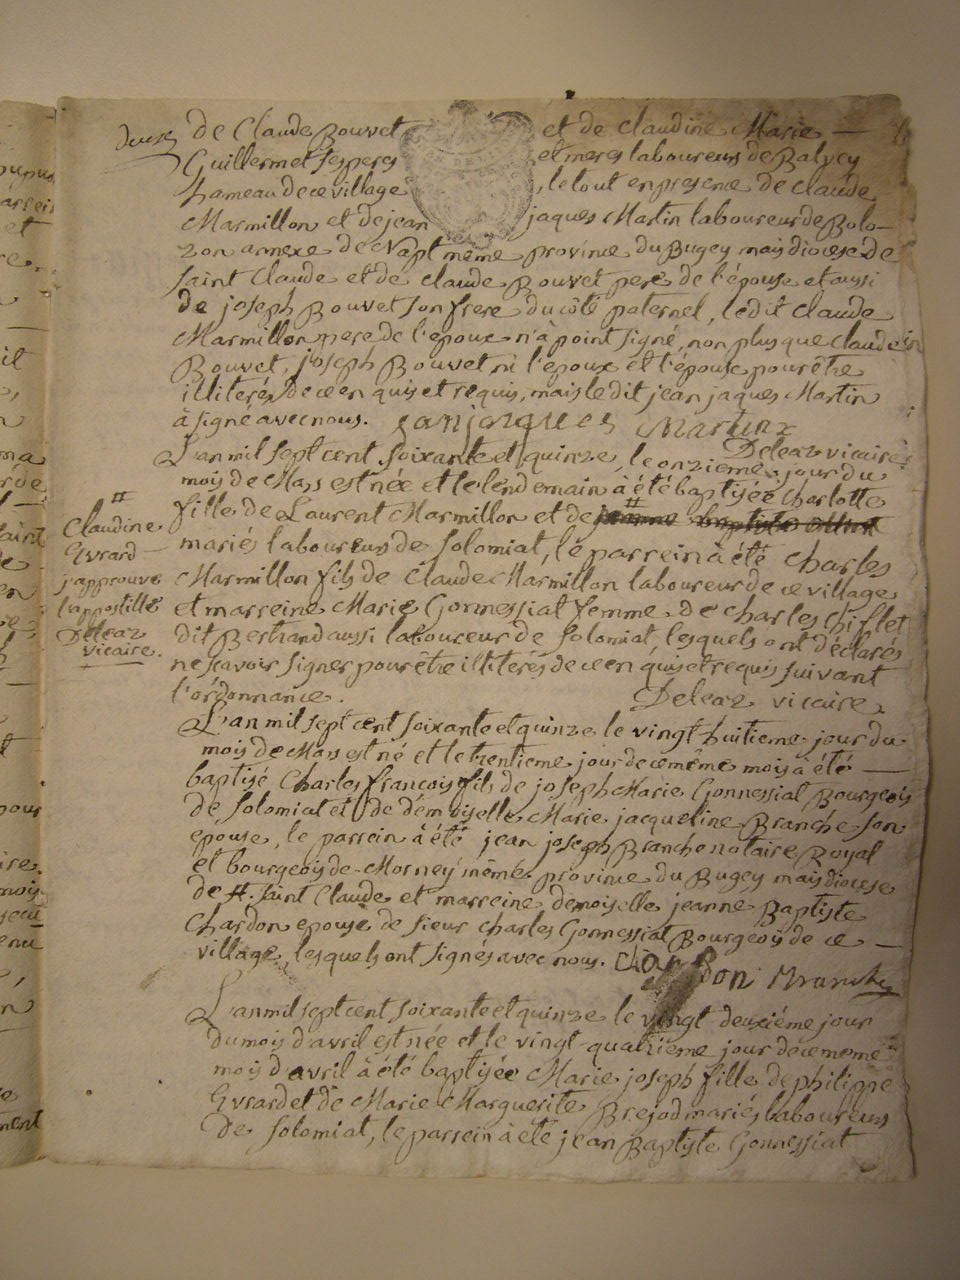 deux
de Claude Bouvet et de claudine Marie —
Guillermet ses peres et meres laboureurs de Balvey
hameau de ce village, le tout en presence de claude
Marmillon et de jean jaques Martin laboureur de Bolo-
zon annexe de Napt même province du Bugey mais diocese de
saint Claude et de claude Bouvet pere de l'épouse et aussi
de joseph Bouvet son frere du côté paternel, le dit claude
Marmillon pere de l'epoux n'à point signé, non plus que claude
Bouvet, joseph Bouvet ni l'epoux et l'épouse pour être
illiterés de ce enquis et requis, mais le dit jean jaques Martin
à signé avec nous. janjacques Martin
Deleaz vicaire
L'an mil sept cent soixante et quinze, le onzieme jour du
mois de Mars est née et le lendemain à été baptisée Charlotte
fille de Laurent Marmillon et de # jeanne baptiste
mariés laboureurs de solomiat, le parrein à été Charles
Marmillon fils de Claude Marmillon laboureur de ce village
et marreine Marie Gonnessiat femme de charles chiflet
dit Bertrand aussi laboureur de solomiat, lesquels ont déclarés
ne scavoir signer pour être illiterés de ce enquis et requis suivant
l'ordonnance. Deleaz vicaire
#
Claudine
Evrard
j'approuve
l'appostille
Deleaz
vicaire.
L'an mil sept cent soixante et quinze le vingt huitieme jour du
mois de Mars est né et le trentieme jour de ce même mois à été —
baptisé Charles François fils de joseph Marie Gonnessiat Bourgeois
de solomiat et de démoiselle Marie jacqueline Branche son
epouse, le parrein à été jean joseph Branche notaire Royal
et bourgeois de Morney même province du Bugey mais diocese
de #. saint Claude et marreine démoiselle jeanne Baptiste
Chardon epouse de sieur charles Gonnessiat Bourgeois de ce —
village, lesquels ont signés avec nous. chardon Branche
L'an mil sept cent soixante et quinze le vingt deuxiéme jour
du mois d'avril est née et le vingt-quatrieme jour de ce meme
mois d'avril à été baptisée Marie joseph fille de philippe
Evrard et de Marie Marguerite Brejod mariés laboureurs
de solomiat, le parrein à été jean Baptiste Gonnessiat